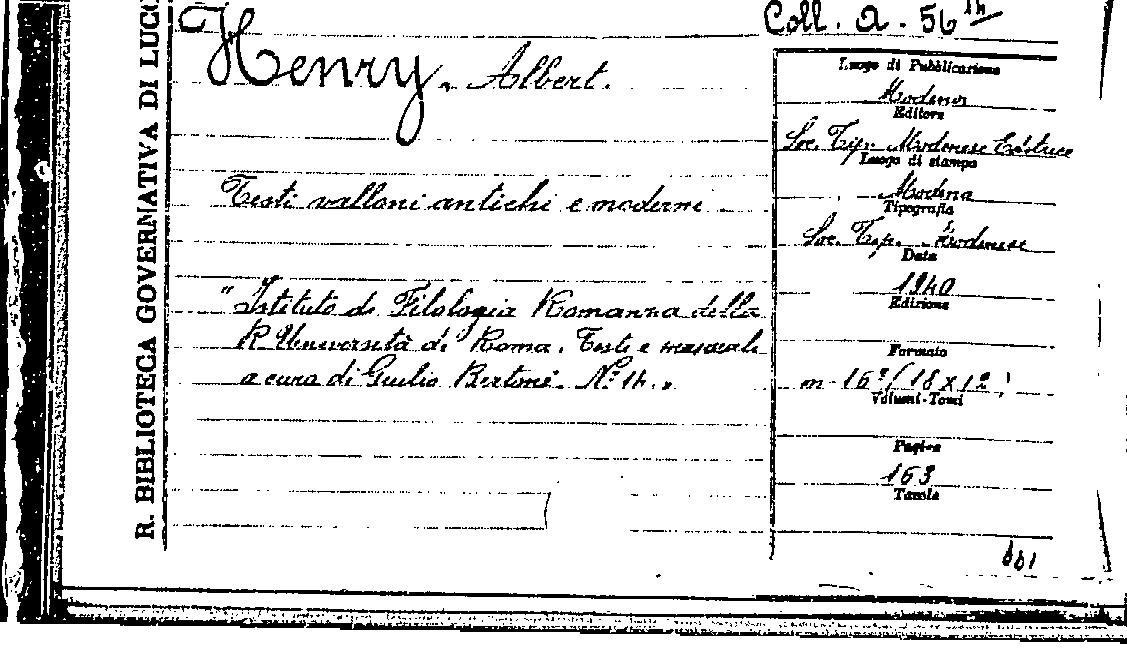 R. BIBLIOTECA GOVERNATIVA DI LUCC
Coll. A. 56
Henry, Albert.
Testi valloni antichi e moderni
"Istituto di Filologia Romanza della
R Università di Roma. Testi e manuali
a cura di Giulio Bertoni. N° 14."
Luogo di Pubblicazione
Modena
Editore
Soc. Tip. Modenese Editrice
Luogo di stampa
Modena
Tipografia
Soc. Tip. Modenese
Data
1940
Edizione
Formato
in-16° (18 x 12)
Volumi-Tomi
Pagine
163
Tavole